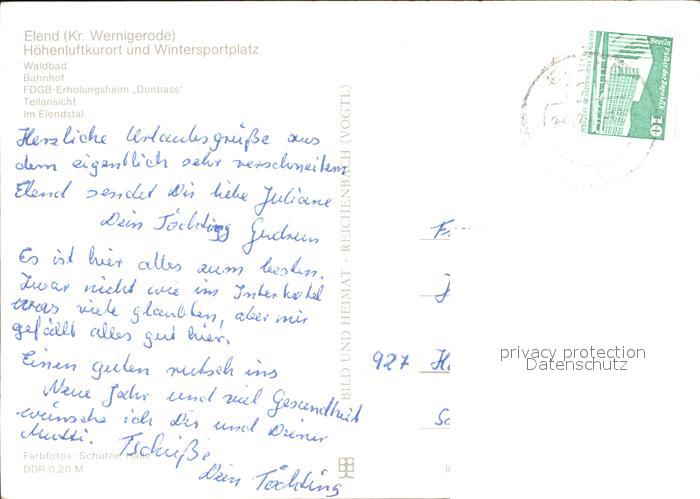 Elend (Kr. Wernigerode)
Höhenluftkurort und Wintersportplatz
Waldbad
Bahnhof
FDGB-Erholungsheim „Donbass"
Teilansicht
Im Elendstal
Herzliche Urlaubsgrüße aus
dem eigentlich sehr verschneitem
Elend sendet Dir liebe Juliane
Dein Töchting Gudrun
Es ist hier alles zum besten.
Zwar nicht wie im Interhotel
was viele glaubten, aber mir
gefällt alles gut hier.
Einen guten rutsch ins
Neue Jahr und viel Gesundheit
wünsche ich Dir und Deiner
Mutti. Tschüße
Dein Töchting
Farbfotos: Schütze, Halle
DDR 0,20 M
BILD UND HEIMAT · REICHENBACH (VOGTL)
Berlin
Palast der Republik
10
F
J
927 H
S
privacy protection
Datenschutz